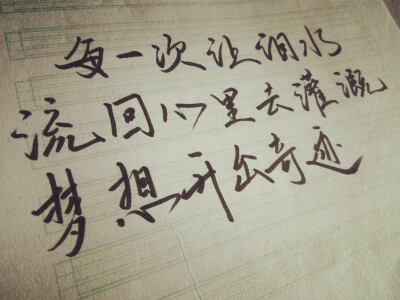 每一次让泪水
流回心里去灌溉
梦想开出奇迹